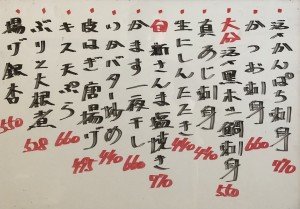 近海かんぱち刺身 770
かつお刺身 660
大分 近海黒木ッ鯛刺身 560
真あじ刺身 440
生にしんたたき 440
旬 新さんま塩焼き 770
かます一夜干し 660
いかバター炒め 440
皮はぎ唐揚げ 495
キス天ぷら 660
ぶりと大根煮 528
揚げ銀杏 550